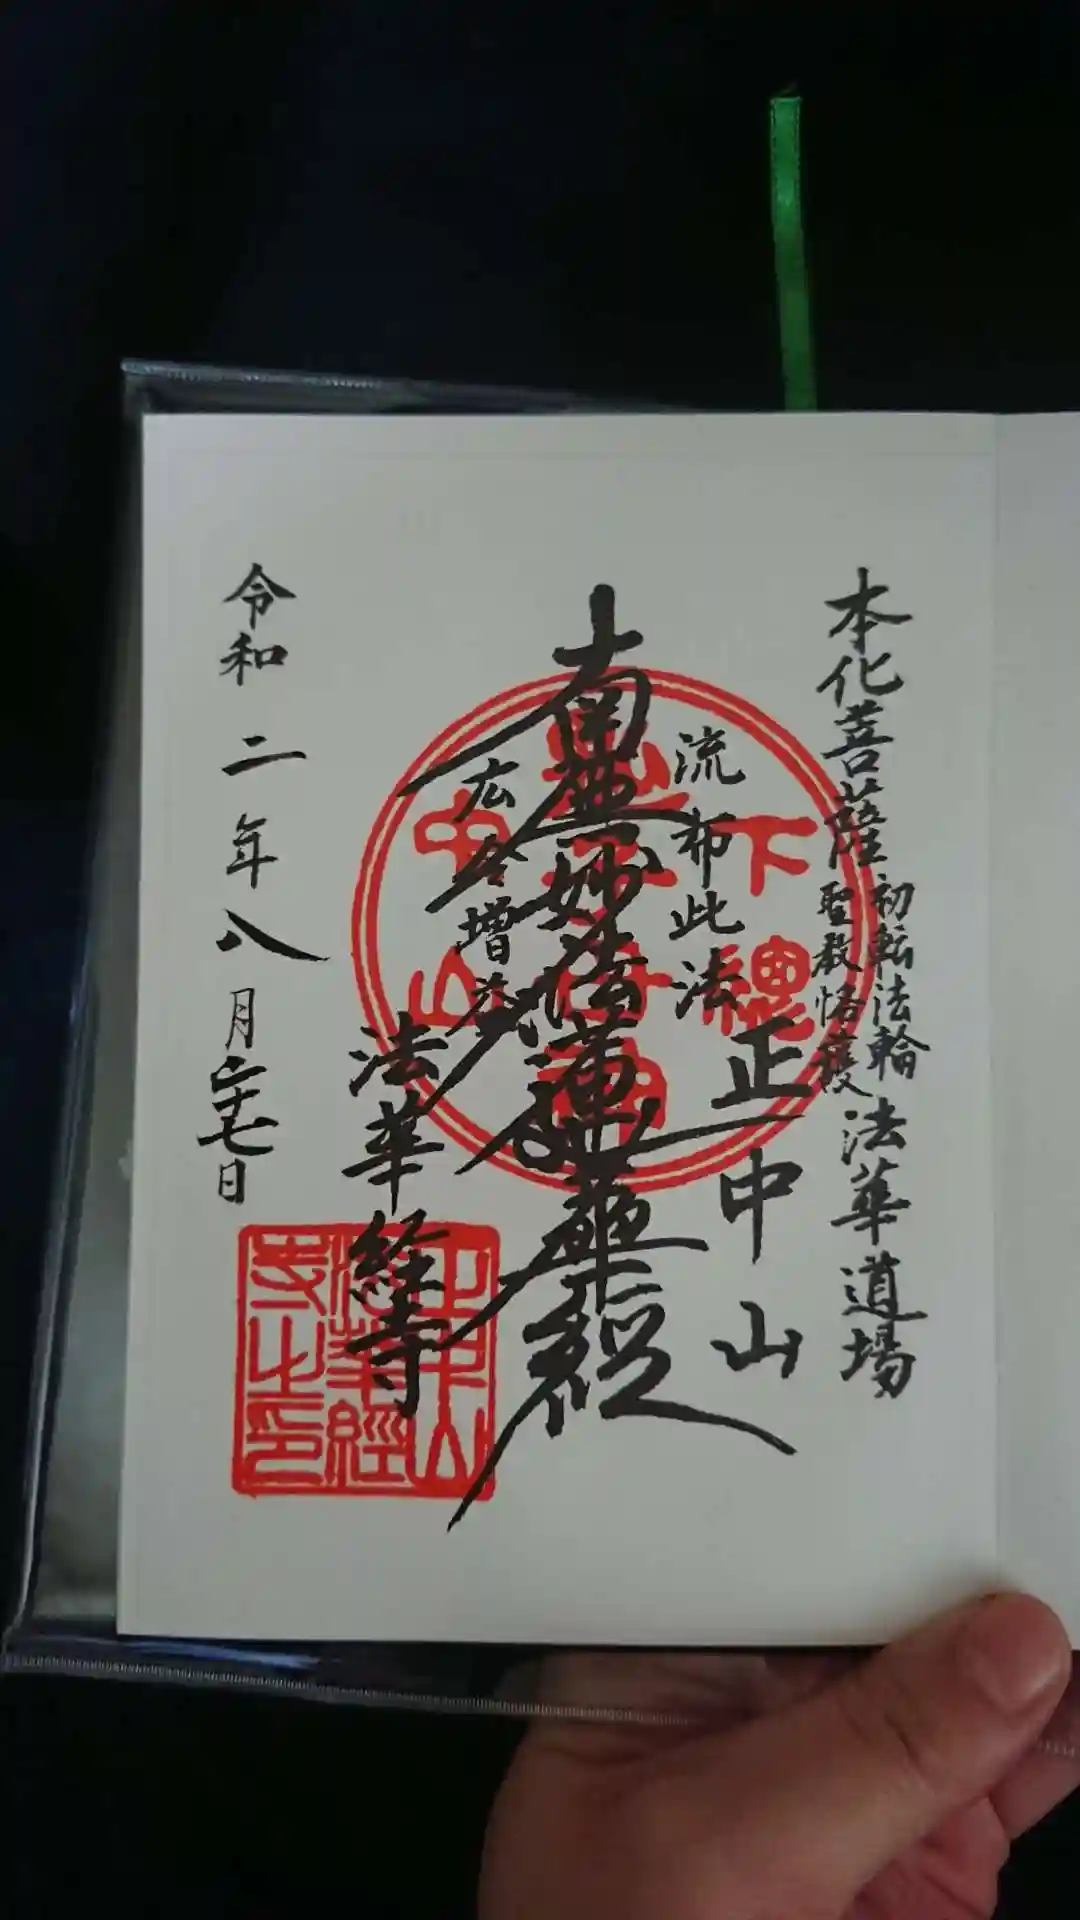 本化菩薩
初転法輪
聖教恪護
法華道場
流布此法
正中山
南無妙法蓮華経
広令増益
法華経寺
令和二年八月二十七日
下總
中山
中山
法華經
寺之印